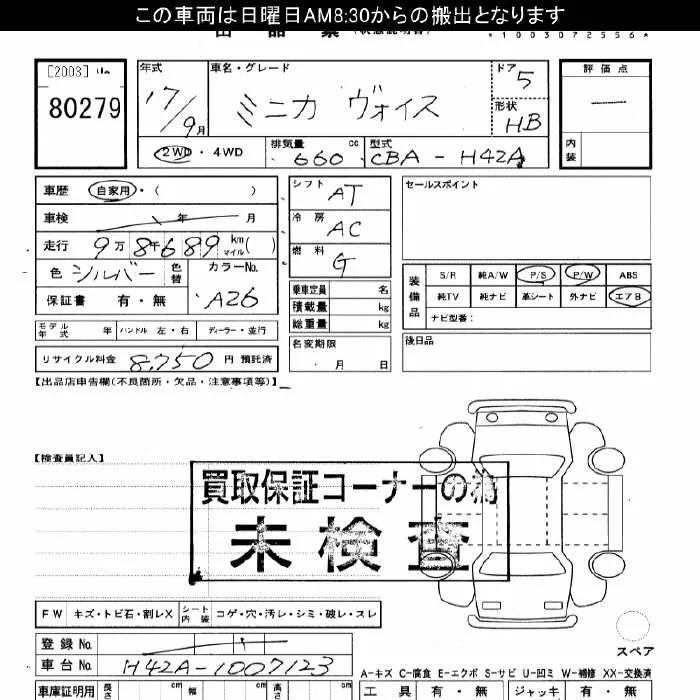 この車両は日曜日AM8:30からの搬出となります
*1003072556*
[2003]
80279
年式 車名・グレード ドア 評価点
17/9月 ミニカ ヴォイス 5
形状 HB
内装
2WD・4WD 排気量 660 cc 型式 CBA-H42A
車歴 自家用・( )
車検 年 月
走行 9万8千689 km マイル( )
色 シルバー 色替 カラーNo. A26
保証書 有・無
シフト AT
冷房 AC
燃料 G
乗車定員 名
積載量 kg
総重量 kg
名変期限 ・月 日
セールスポイント
装備品 S/R 純A/W P/S P/W ABS
純TV 純ナビ 革シート 外ナビ エアB
ナビ型番：
後日品
モデル年式 年 ハンドル 左・右 ディーラー・並行
リサイクル料金 8,750 円 預託済
【出品店申告欄(不良箇所・欠品・注意事項等)】
【検査員記入】
買取保証コーナーの為
未検査
FW キズ・トビ石・割レX シート内装 コゲ・穴・汚レ・シミ・破レ・スレ
登録No.
車台No. H42A-1007123
スペア
A-キズ C-腐食 E-エクボ S-サビ U-凹ミ W-補修 XX-交換済
車庫証明用 長さ cm 幅 cm 高さ cm 工具 有・無 ジャッキ 有・無